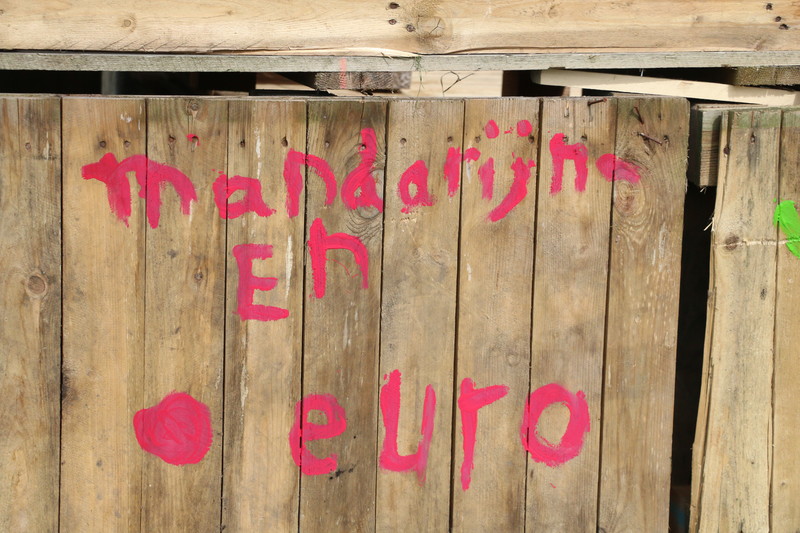 mandarijn-
En
euro